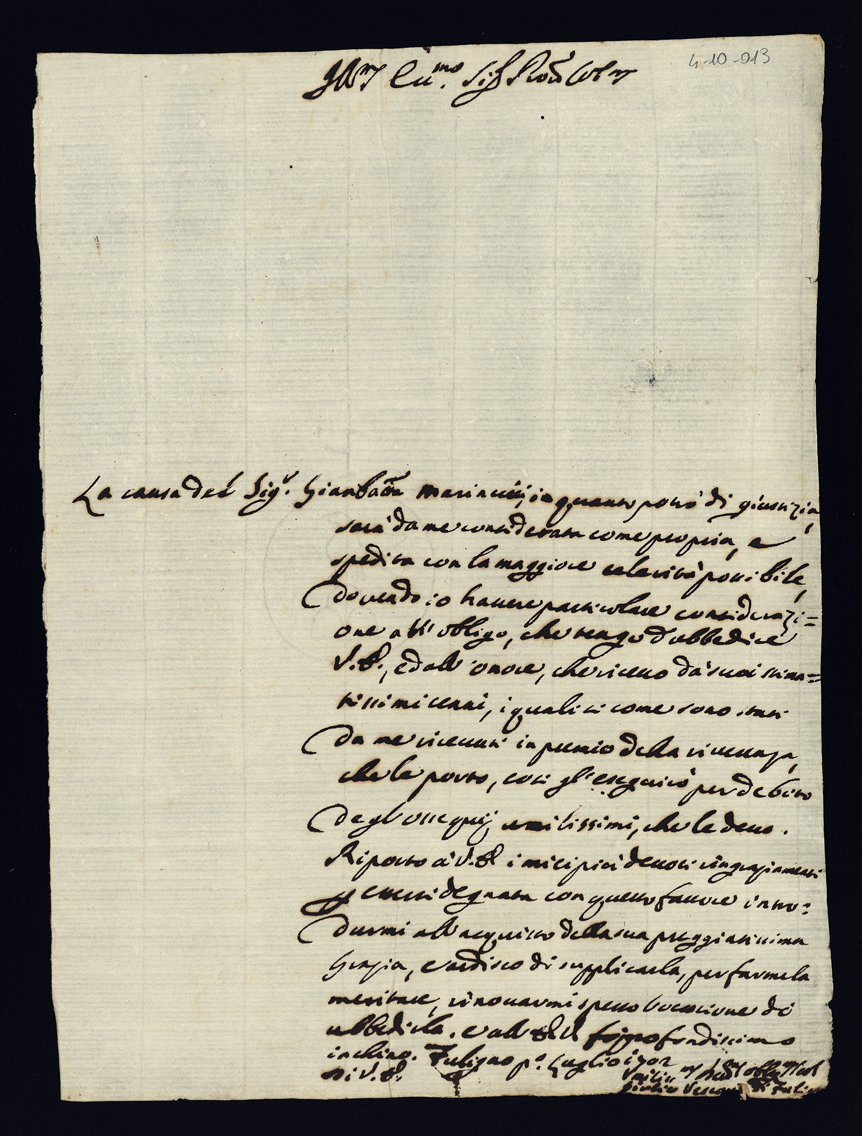 4-10-013
Ill.mo Sig.
La causa del Sig.r Gianbatta Marinucci, in quanto potrà di giustizia,
sarà da me considerata come propria, e
spedita con la maggiore celerità possibile,
dovendo io havere particolare considerazi=
one all'obligo, che tengo d'obbedire
V.S., ed all'onore, che ricevo da suoi stima=
tissimi cenni, i quali si come sono stati
da me ricevuti in premio della riverenza,
che le porto, così gl'eseguirò per debito
degl'ossequij umilissimi, che le devo.
Riporto à V.S. i miei più devoti ringraziamenti
essersi degnata con questo favore intro=
durmi all'acquisto della sua preggiatissima
grazia, e ardisco di supplicarla, per farmela
meritare, rinovarmi spesso l'occasione di
ubbidirla. e all
inchino. Fuligno p.o Luglio 1702
Di V.S.
Vescovo di Fuligno